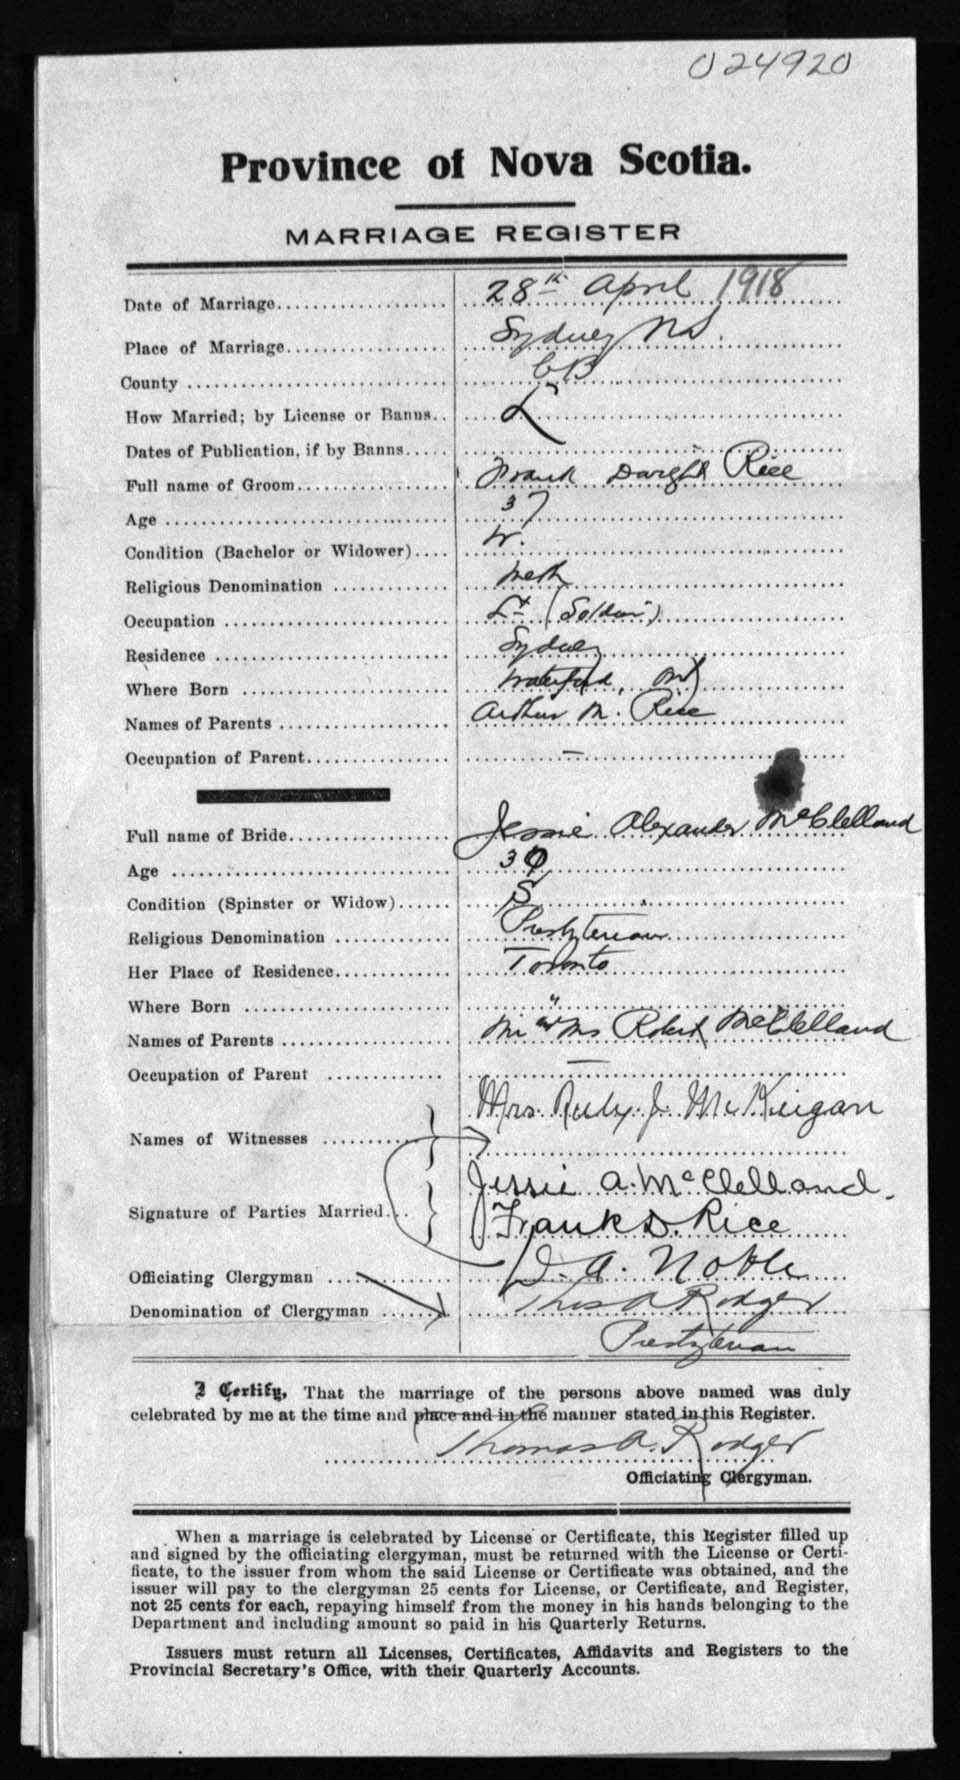 024920
Province of Nova Scotia.
MARRIAGE REGISTER
Date of Marriage 28th April 1918
Place of Marriage Sydney NS.
County CB
How Married; by License or Banns L
Dates of Publication, if by Banns
Full name of Groom Frank Dwight Rice
Age 37
Condition (Bachelor or Widower) W.
Religious Denomination Meth
Occupation Lt (Soldier)
Residence Sydney
Where Born Waterford, Ont
Names of Parents Arthur M. Rice
Occupation of Parent —
Full name of Bride Jessie Alexander McClelland
Age
Condition (Spinster or Widow) S
Religious Denomination Presbyterian
Her Place of Residence Toronto
Where Born "
Names of Parents Mr and Mrs Robert McClelland
Occupation of Parent —
Names of Witnesses Mrs. Ruby J. McKeigan
Signature of Parties Married Jessie A. McClelland.
Frank D. Rice
Officiating Clergyman D. A. Noble
Denomination of Clergyman Thos A Rodger
Presbyterian
I Certify, That the marriage of the persons above named was duly
celebrated by me at the time and place and in the manner stated in this Register.
Thomas A. Rodger
Officiating Clergyman.
When a marriage is celebrated by License or Certificate, this Register filled up
and signed by the officiating clergyman, must be returned with the License or Certi-
ficate, to the issuer from whom the said License or Certificate was obtained, and the
issuer will pay to the clergyman 25 cents for License, or Certificate, and Register,
not 25 cents for each, repaying himself from the money in his hands belonging to the
Department and including amount so paid in his Quarterly Returns.
Issuers must return all Licenses, Certificates, Affidavits and Registers to the
Provincial Secretary's Office, with their Quarterly Accounts.